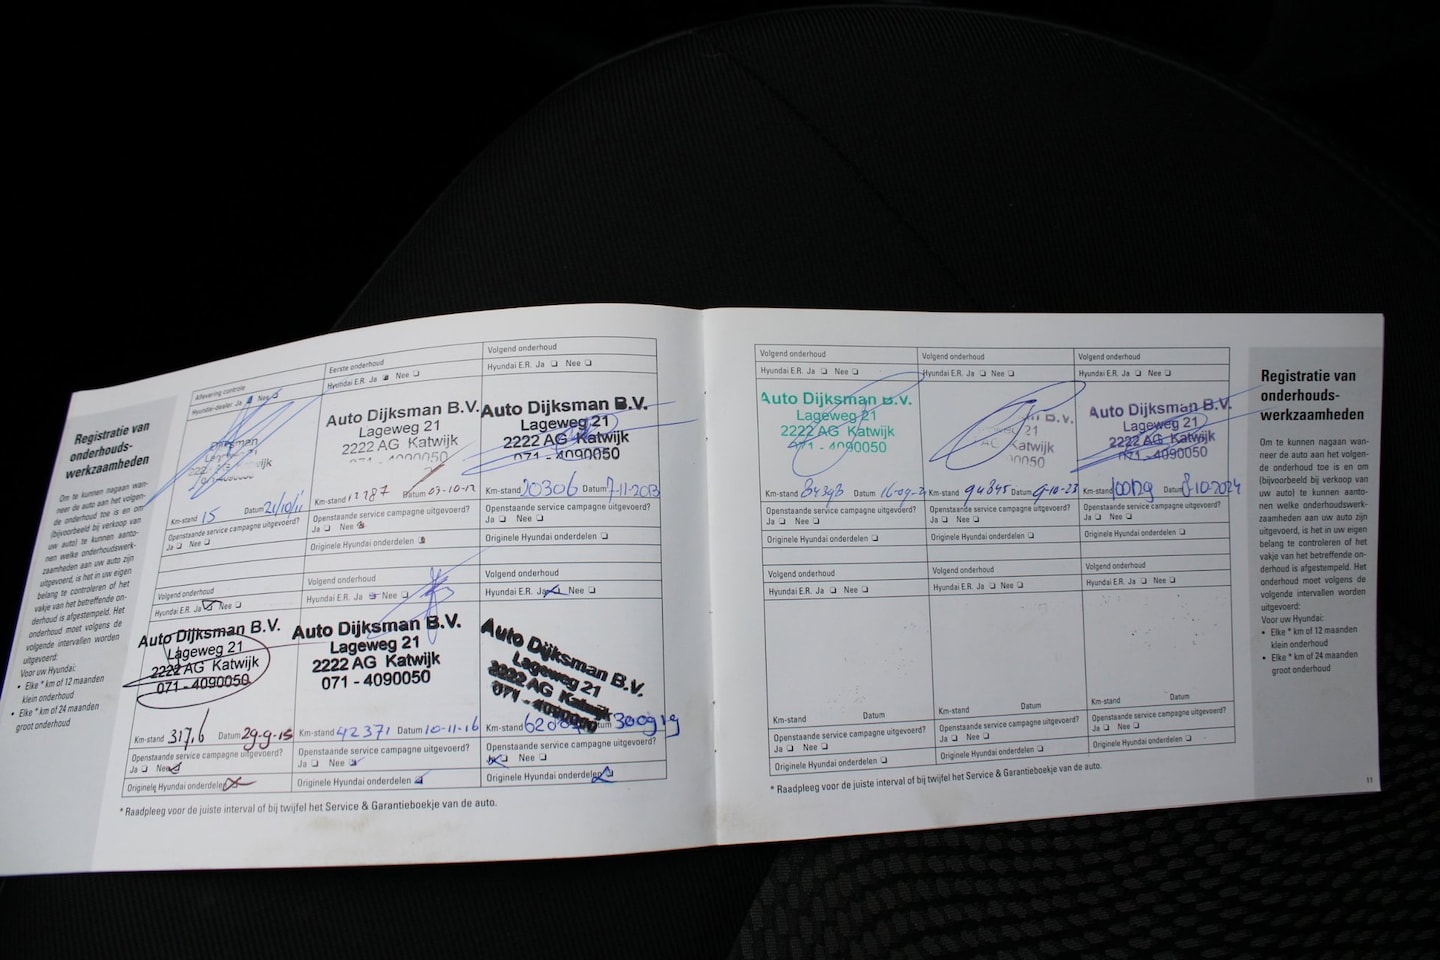 Registratie van
onderhouds-
werkzaamheden
Om te kunnen nagaan wan-
neer de auto aan het volgen-
de onderhoud toe is en om
(bijvoorbeeld bij verkoop van
uw auto) te kunnen aanto-
nen welke onderhoudswerk-
zaamheden aan uw auto zijn
uitgevoerd, is het in uw eigen
belang te controleren of het
vakje van de betreffende on-
derhoud is afgestempeld. Het
onderhoud moet volgens de
volgende intervallen worden
uitgevoerd:
Voor uw Hyundai:
• Elke * km of 12 maanden
klein onderhoud
• Elke * km of 24 maanden
groot onderhoud
Aflevering controle
Hyundai-dealer Ja Nee
Dijksman
Km-stand 15 Datum 21/10/11
Openstaande service campagne uitgevoerd?
Ja Nee
Eerste onderhoud
Hyundai E.R. Ja Nee
Auto Dijksman B.V.
Lageweg 21
2222 AG Katwijk
071 - 4090050
Km-stand 12187 Datum 03-10-12
Openstaande service campagne uitgevoerd?
Ja Nee
Originele Hyundai onderdelen
Volgend onderhoud
Hyundai E.R. Ja Nee
Auto Dijksman B.V.
Lageweg 21
2222 AG Katwijk
071 - 4090050
Km-stand 20306 Datum 7-11-2013
Openstaande service campagne uitgevoerd?
Ja Nee
Originele Hyundai onderdelen
Volgend onderhoud
Hyundai E.R. Ja Nee
Auto Dijksman B.V.
Lageweg 21
2222 AG Katwijk
071 - 4090050
Km-stand Datum 29-9-15
Openstaande service campagne uitgevoerd?
Ja Nee
Originele Hyundai onderdelen
Volgend onderhoud
Hyundai E.R. Ja Nee
Auto Dijksman B.V.
Lageweg 21
2222 AG Katwijk
071 - 4090050
Km-stand 42371 Datum 10-11-16
Openstaande service campagne uitgevoerd?
Ja Nee
Originele Hyundai onderdelen
Volgend onderhoud
Hyundai E.R. Ja Nee
Auto Dijksman B.V.
Lageweg 21
2222 AG Katwijk
071 - 4090050
Km-stand Datum 300919
Openstaande service campagne uitgevoerd?
Ja Nee
Originele Hyundai onderdelen
* Raadpleeg voor de juiste interval of bij twijfel het Service & Garantieboekje van de auto.
Volgend onderhoud
Hyundai E.R. Ja Nee
Auto Dijksman B.V.
Lageweg 21
2222 AG Katwijk
071 - 4090050
Km-stand Datum
Openstaande service campagne uitgevoerd?
Ja Nee
Originele Hyundai onderdelen
Volgend onderhoud
Hyundai E.R. Ja Nee
B.V.
21
AG Katwijk
Km-stand 94845 Datum 9-10-23
Openstaande service campagne uitgevoerd?
Ja Nee
Originele Hyundai onderdelen
Volgend onderhoud
Hyundai E.R. Ja Nee
Auto Dijksman B.V.
Lageweg 21
2222 AG Katwijk
071 - 4090050
Km-stand Datum 8-10-2024
Openstaande service campagne uitgevoerd?
Ja Nee
Originele Hyundai onderdelen
Volgend onderhoud
Hyundai E.R. Ja Nee
Km-stand Datum
Openstaande service campagne uitgevoerd?
Ja Nee
Originele Hyundai onderdelen
Volgend onderhoud
Hyundai E.R. Ja Nee
Km-stand Datum
Openstaande service campagne uitgevoerd?
Ja Nee
Originele Hyundai onderdelen
Volgend onderhoud
Hyundai E.R. Ja Nee
Km-stand Datum
Openstaande service campagne uitgevoerd?
Ja Nee
Originele Hyundai onderdelen
* Raadpleeg voor de juiste interval of bij twijfel het Service & Garantieboekje van de auto.
Registratie van
onderhouds-
werkzaamheden
Om te kunnen nagaan wan-
neer de auto aan het volgen-
de onderhoud toe is en om
(bijvoorbeeld bij verkoop van
uw auto) te kunnen aanto-
nen welke onderhoudswerk-
zaamheden aan uw auto zijn
uitgevoerd, is het in uw eigen
belang te controleren of het
vakje van de betreffende on-
derhoud is afgestempeld. Het
onderhoud moet volgens de
volgende intervallen worden
uitgevoerd:
Voor uw Hyundai:
• Elke * km of 12 maanden
klein onderhoud
• Elke * km of 24 maanden
groot onderhoud
11